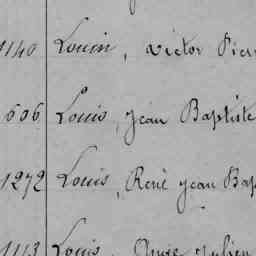 1140 Louin, Victor Pierr
606 Louis, Jean Baptiste
1272 Louis, René Jean Bap
1113 Louis, Julien